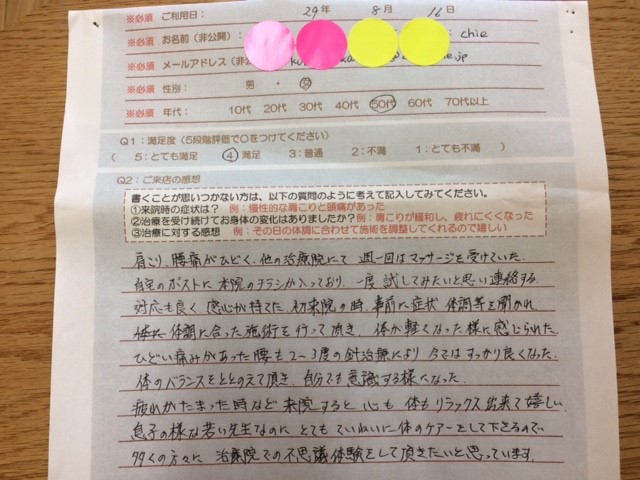 ※必須 ご利用日： 29年 8月 16日
※必須 お名前（非公開）： chie
※必須 メールアドレス（非公 jp
※必須 性別： 男 ・ 女
※必須 年代： 10代 20代 30代 40代 50代 60代 70代以上
Q1：満足度（5段階評価で○をつけてください）
（ 5：とても満足 4：満足 3：普通 2：不満 1：とても不満 ）
Q2：ご来店の感想
書くことが思いつかない方は、以下の質問のように考えて記入してみてください。
①来院時の症状は？ 例：慢性的な肩こりと頭痛があった
②治療を受け続けてお身体の変化はありましたか？ 例：肩こりが緩和し、疲れにくくなった
③治療に対する感想 例：その日の体調に合わせて施術を調整してくれるので嬉しい
肩こり、腰痛がひどく、他の治療院にて 週一回はマッサージを受けていた。
自宅のポストに本院のチラシが入っており、一度試してみたいと思い連絡する。
対応も良く、感心が持てた。初来院の時、事前に症状 体調等を聞かれ
体調に合った施術を行って頂き、体が軽くなった様に感じられた。
ひどい痛みがあった腰も2〜3度の針治療により 今ではすっかり良くなった。
体のバランスをととのえて頂き、自分でも意識する様になった。
疲れがたまった時など来院すると 心も 体もリラックス出来て嬉しい。
息子の様な若い先生なのに とても ていねいに体のケアーをして下さるので、
多くの方々に 治療院での不思議体験をして頂きたいと思っています。